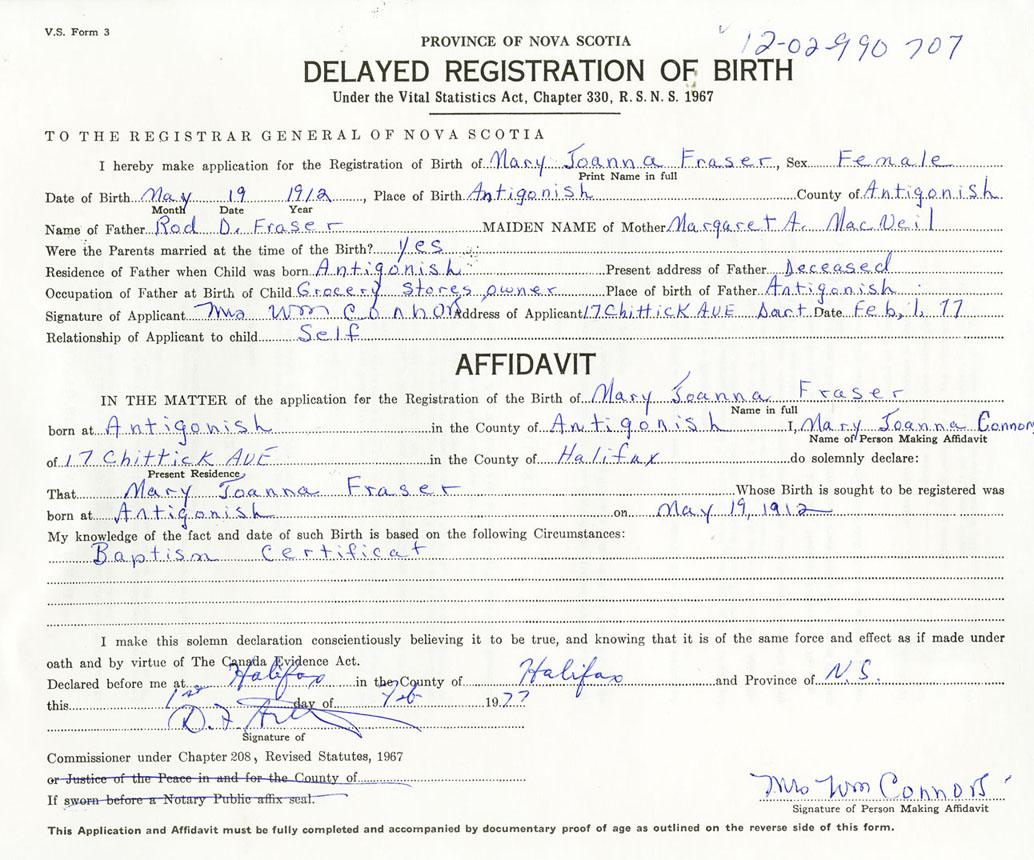 V.S. Form 3
PROVINCE OF NOVA SCOTIA
12-02-990 707
DELAYED REGISTRATION OF BIRTH
Under the Vital Statistics Act, Chapter 330, R. S. N. S. 1967
TO THE REGISTRAR GENERAL OF NOVA SCOTIA
I hereby make application for the Registration of Birth of Mary Joanna Fraser, Sex Female
Print Name in full
Date of Birth May 19 1912, Place of Birth Antigonish County of Antigonish
Month Date Year
Name of Father Rod D. Fraser MAIDEN NAME of Mother Margaret A. MacNeil
Were the Parents married at the time of the Birth? yes
Residence of Father when Child was born Antigonish Present address of Father Deceased
Occupation of Father at Birth of Child Grocery Stores owner Place of birth of Father Antigonish
Signature of Applicant Mrs Wm Connors Address of Applicant 17 Chittick AVE Dart Date Feb, 1, 77
Relationship of Applicant to child Self
AFFIDAVIT
IN THE MATTER of the application for the Registration of the Birth of Mary Joanna Fraser
Name in full
born at Antigonish in the County of Antigonish I, Mary Joanna Connor
Name of Person Making Affidavit
of 17 Chittick AVE in the County of Halifax do solemnly declare:
Present Residence
That Mary Joanna Fraser Whose Birth is sought to be registered was
born at Antigonish on May 19, 1912
My knowledge of the fact and date of such Birth is based on the following Circumstances:
Baptism Certificat
I make this solemn declaration conscientiously believing it to be true, and knowing that it is of the same force and effect as if made under
oath and by virtue of The Canada Evidence Act.
Declared before me at Halifax in the County of Halifax and Province of N.S.
this 1st day of Feb 1977
D. F.
Signature of
Commissioner under Chapter 208, Revised Statutes, 1967
or Justice of the Peace in and for the County of
If sworn before a Notary Public affix seal.
Mrs Wm Connors
Signature of Person Making Affidavit
This Application and Affidavit must be fully completed and accompanied by documentary proof of age as outlined on the reverse side of this form.